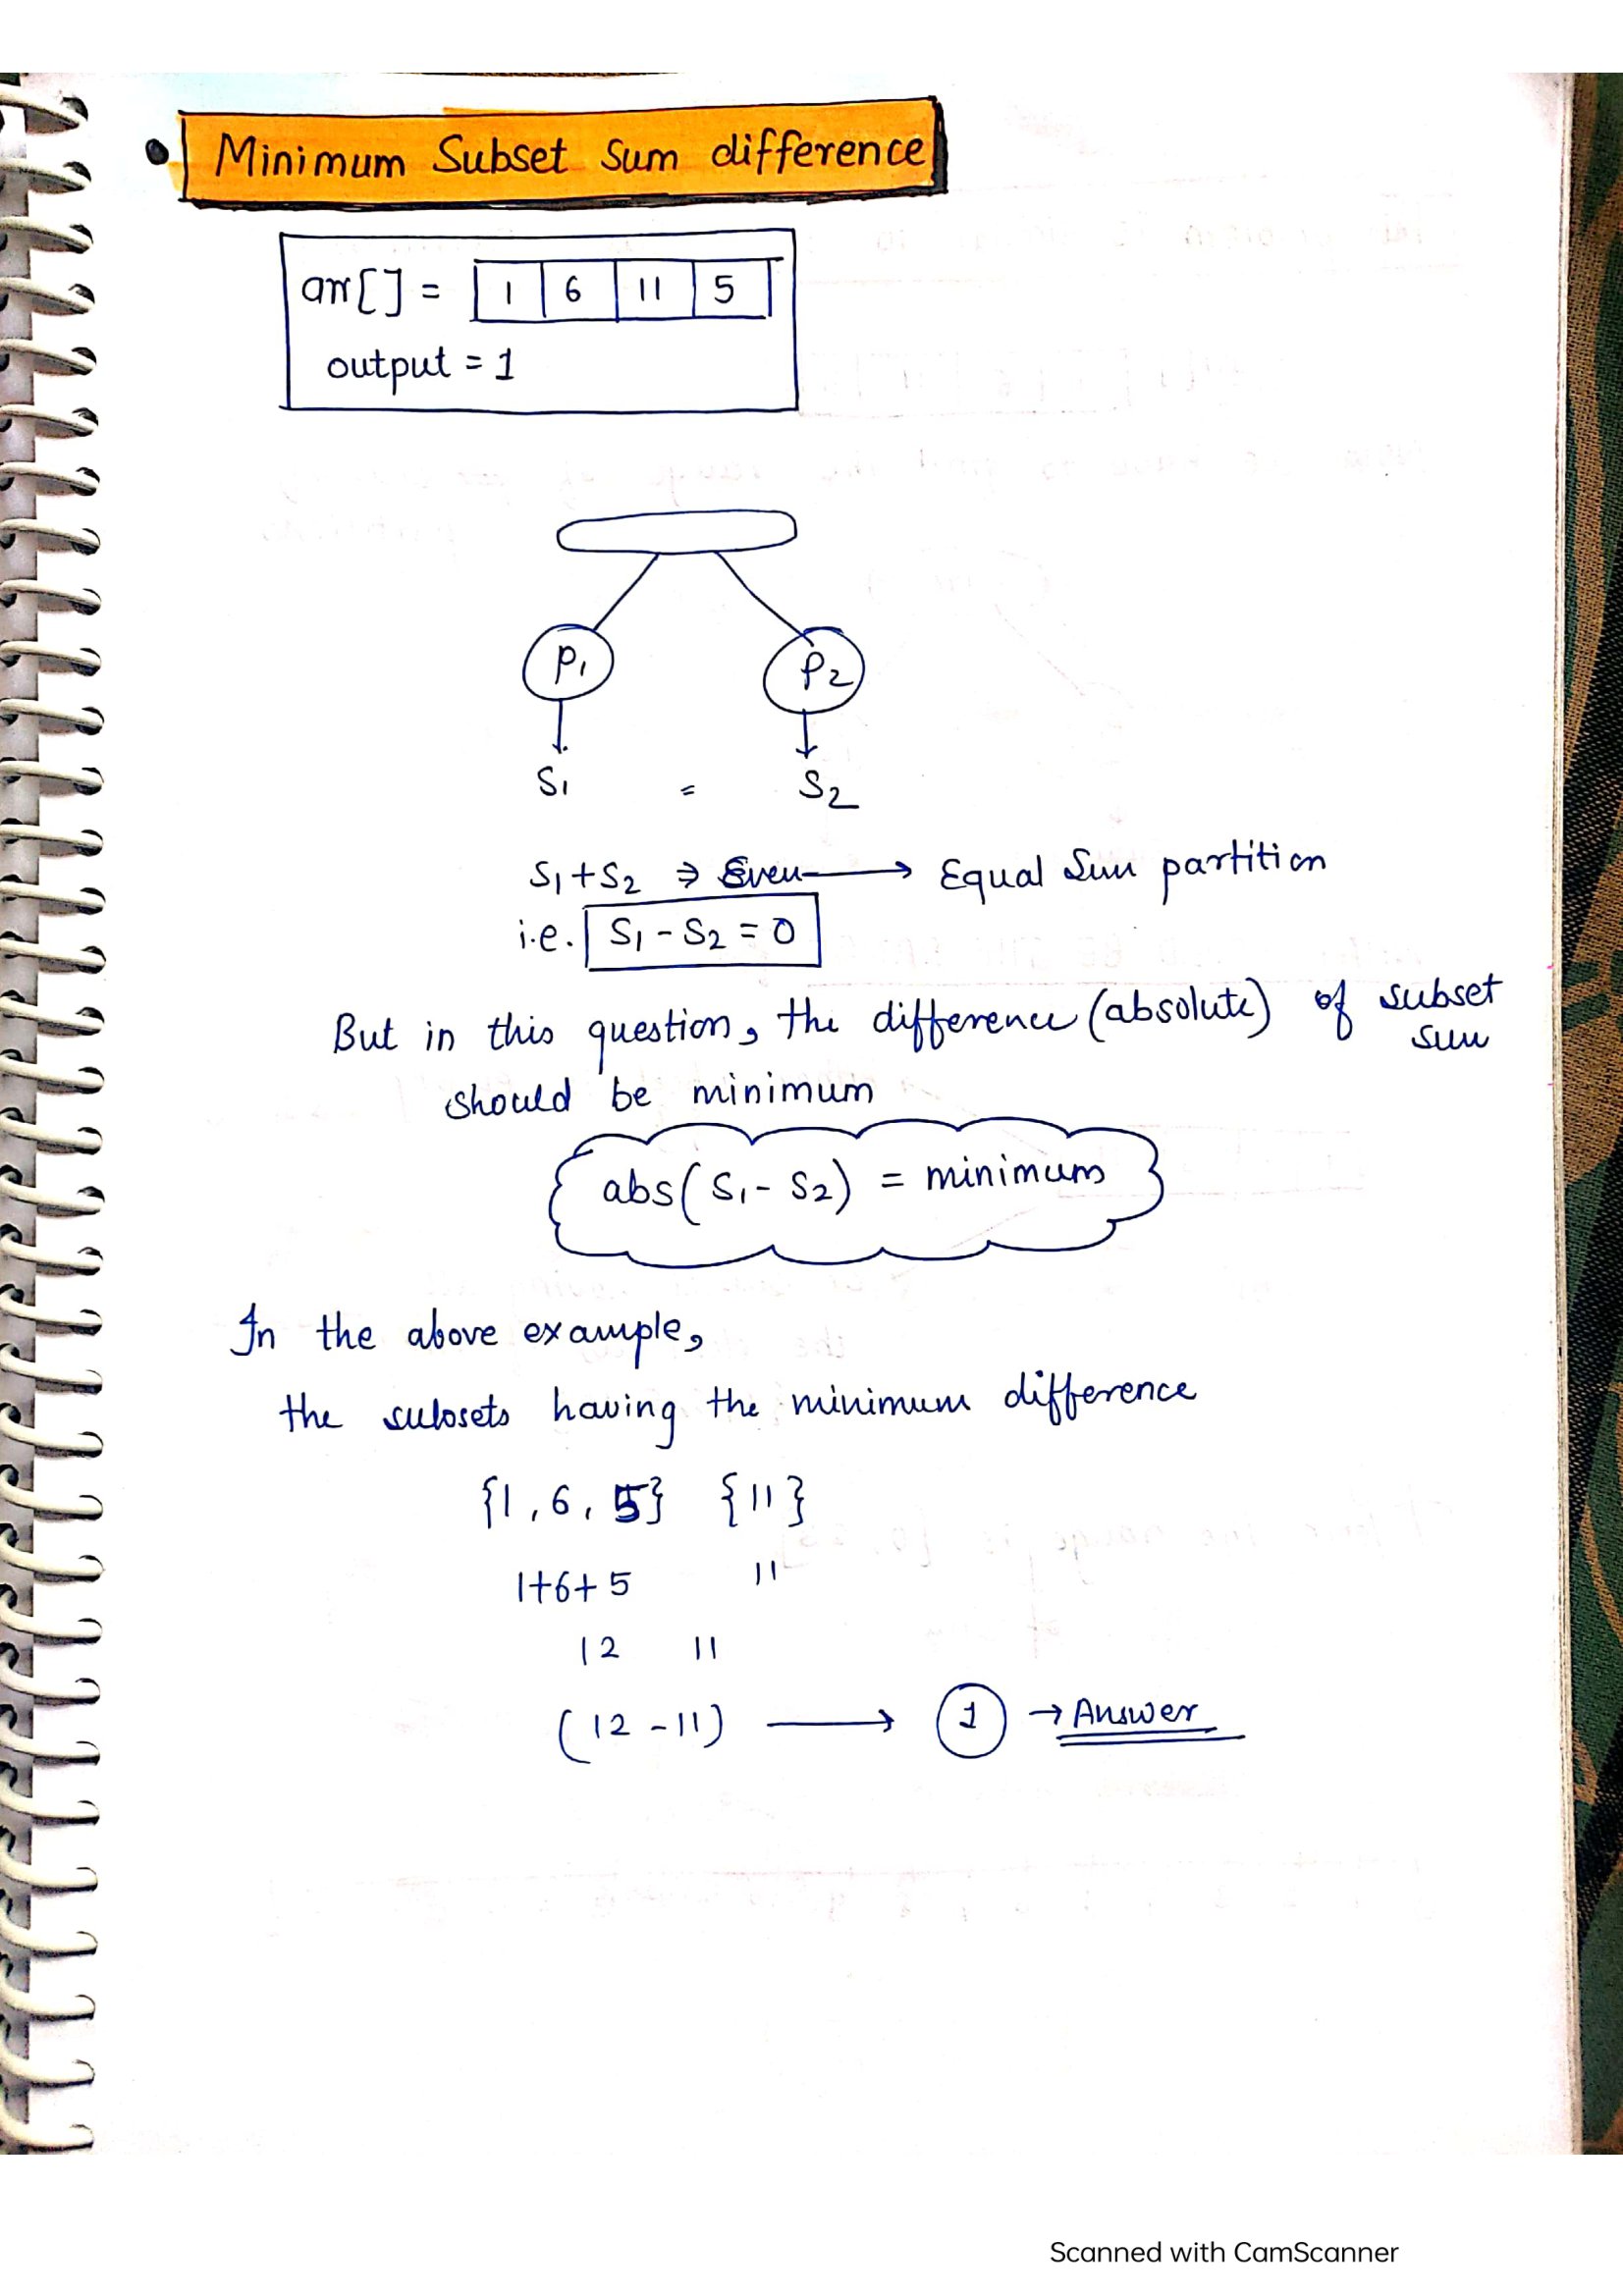 Minimum Subset Sum difference
arr[] = 1 6 11 5
output = 1
P1 P2
S1 = S2
S1+S2 ⇒ Even → Equal Sum partition
i.e. S1 - S2 = 0
But in this question, the difference (absolute) of subset sum
should be minimum
abs(S1 - S2) = minimum
In the above example,
the subsets having the minimum difference
{1, 6, 5} {11}
1+6+5 11
12 11
(12 - 11) → 1 → Answer
Scanned with CamScanner